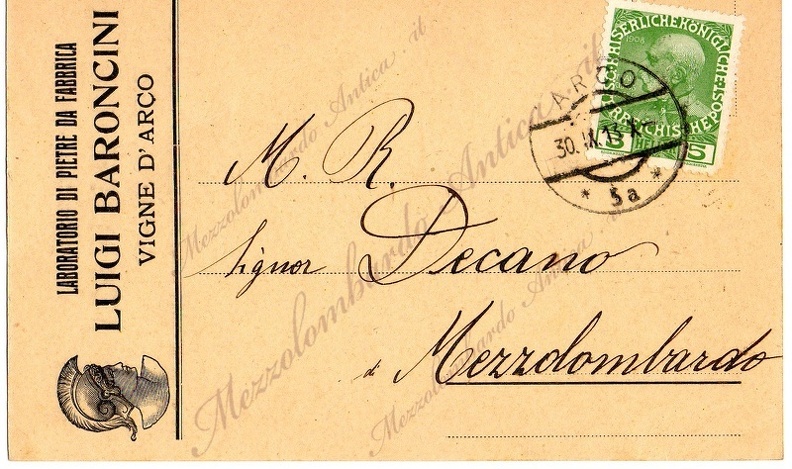 LABORATORIO DI PIETRE DA FABBRICA
LUIGI BARONCINI
VIGNE D'ARÇO
M. R.
Signor Decano
di Mezzolombardo
ARCO
30. IX. 13
* 5a *
1908
5
5
HELLER
Mezzolombardo Antica.it
Mezzolombardo Antica.it
Mezzolombardo Antica